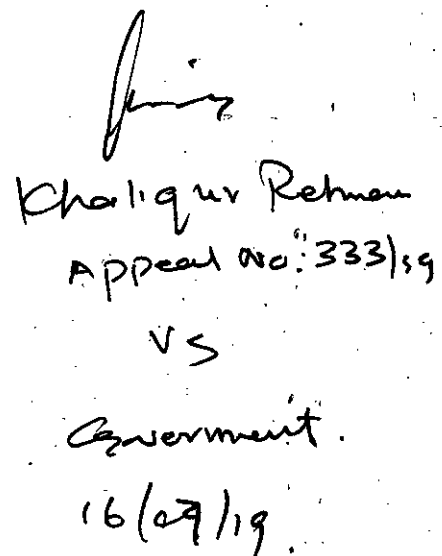 Khaliqur Rehman
Appeal No: 333/19
VS
Goverment.
16/09/19